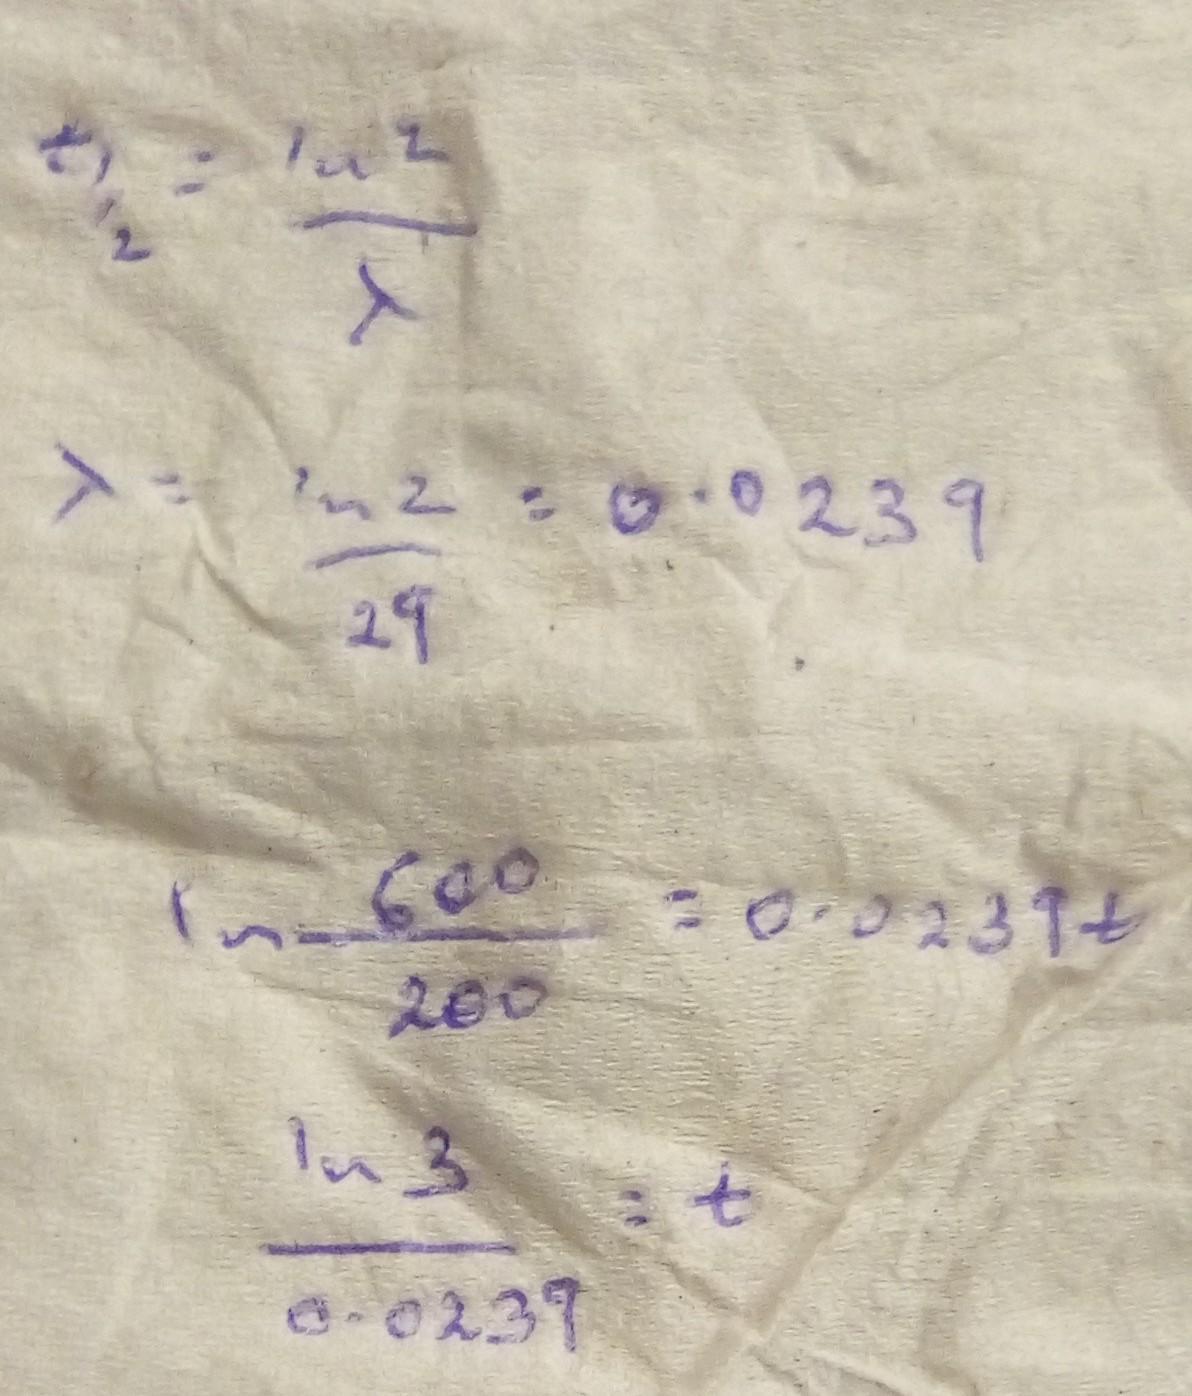 t1/2 = ln 2 / λ
λ = ln 2 / 29 = 0.0239
ln 600 / 200 = 0.0239t
ln 3 / 0.0239 = t